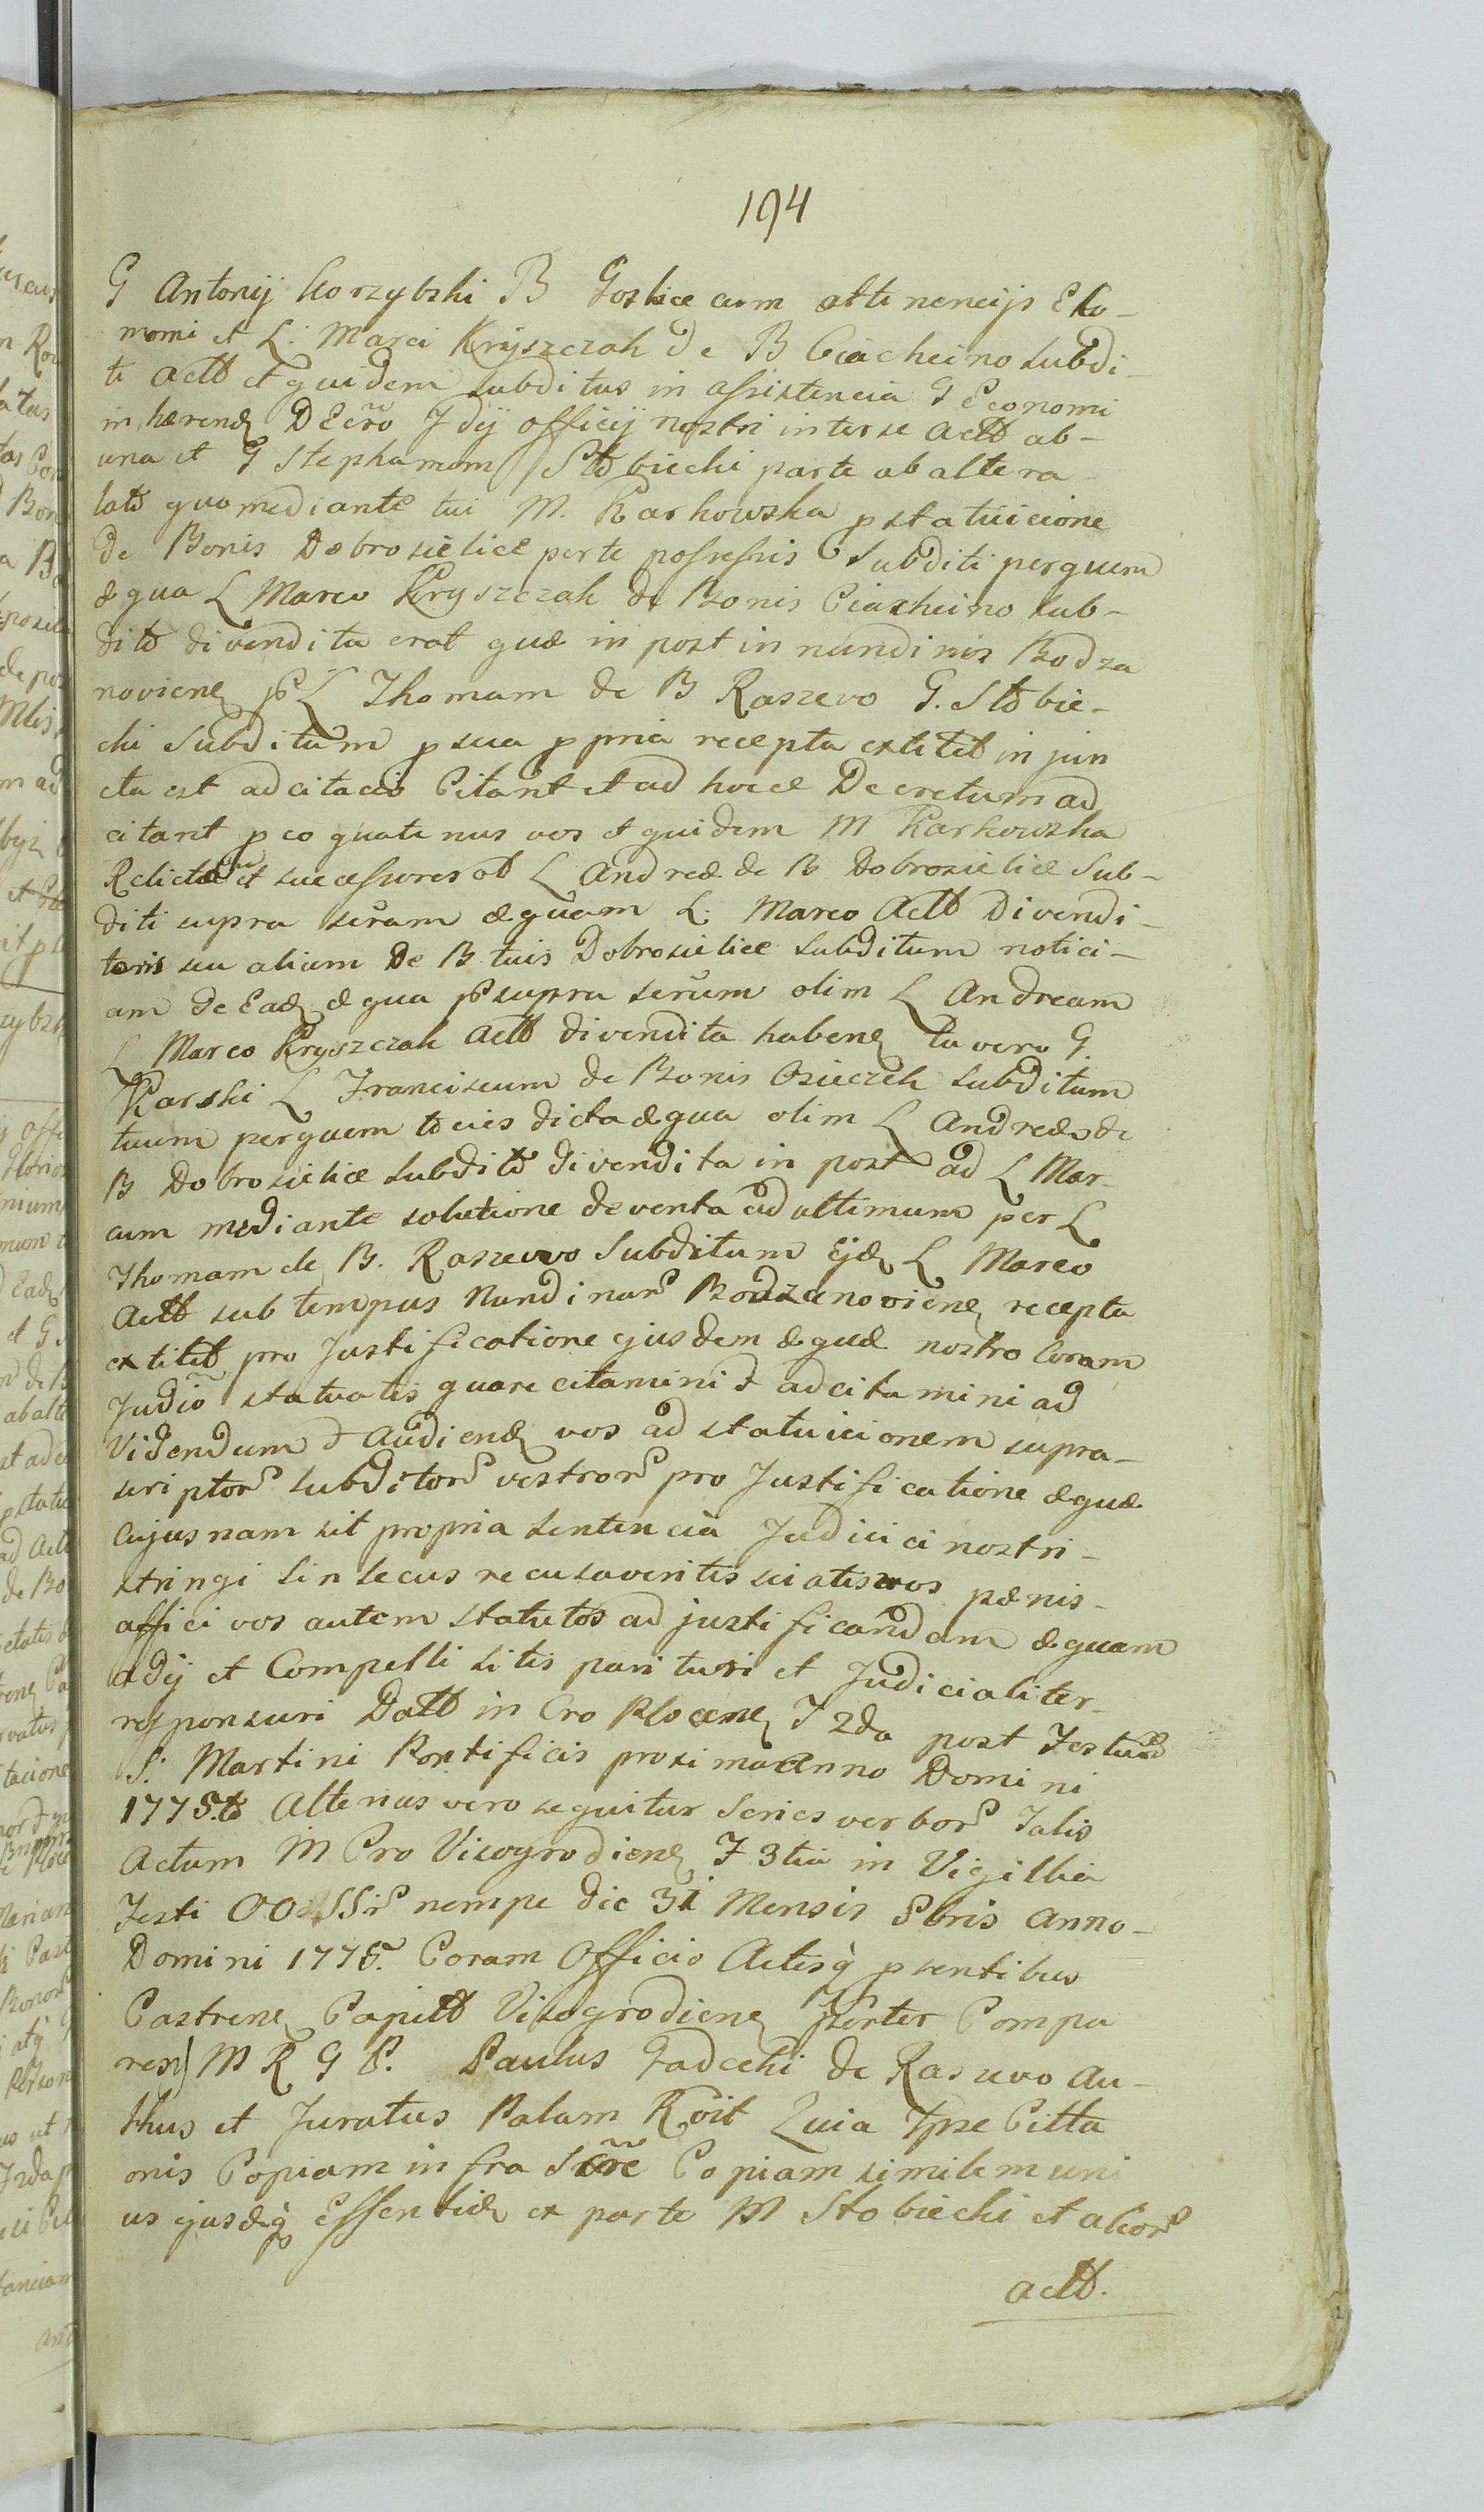 194
G Antonij Korzybski B Goslice cum attinencijs Eko-
nomi et L: Marci Kryszczak de B Ciacheino subdi-
ti Actt et quidem subditus in assistencia G Economi
inhærenđ DEcrõ Jdÿ officij nostri inter se Actt ab-
una et G Stephanum Stobiecki parte ab altera-
lato quo mediante tui M. Karkowska pstatuicione
de Bonis Dobrosielice parte possessis Subditi perquem
æqua L Marco Kryszczak de Bonis Ciacheino sub-
dito divendita erat quæ in post in nundinis Bodza
novienẽ p L Thomam de B Raszewo G. Stobie-
cki Subditum p sua ppria recepta extitit injun
cta est adcitacio Citant et ad hocce Decretum ad
citant p eo quatenus vos et quidem M Karkowska
Relictæ et successores ol L Andreæ de B Dobrosielice Sub-
diti supra scrũm æquam L: Marco Actt Divendi-
toris seu alium De B tuis Dobrosielice subditum notici-
am de Eađ æqua p supra scrũm olim L Andream
L Marco Kryszczak Actt divendita habenẽ tu vero G.
Karski L Franciscum de Bonis Osieczek subditum
tuum perquem toties dicta æqua olim L Andreæ de
B Dobrosielice subdito divendita in post ad L Mar-
cum mediante solutione deventa ad ultimum per L
Thomam de B. Raszewo Subditum Ejđ L Marco
Actt sub tempus Nundinar Bodzanovienẽ recepta
extitit pro Justificatione ejusdem æquæ nostro Coram
Judiõ statuatis quare citamini & adcitamini ad
Videndum & Audienđ vos ad statuicionem supra-
scriptor subditor vestror pro Justificatione æquæ
cujusnam sit propria sentencia Judicii nostri-
stringi sin secus recusaveritis sciatis vos pænis-
affici vos autem statutos ad justificandam æquam
adÿ et Compelli sitis parituri et Judicialiter-
responsuri Datt in Cro Plocenẽ F 2da post Festum
S. Martini Pontificis proxima Anno Domini
1775.to Alterius vero sequitur Series verbor Talis
Actum in Cro Visogrodienẽ F 3tia in Vigilia
Festi OO SS nempe die 31 Mensis 8bris Anno-
Domini 1775. Coram Officio Actisq̀ psentibus
Castrenẽ Capitt Visogrodienẽ psonter Compa
renẽ M R G P. Paulus Gadecki de Raszewo Au-
thus et Juratus Palam Rõit Quia Ipse Citta
onis Copiam infra Scrõe Copiam similem uni
us ejusđq̀ Essentiæ ex parte M Stobiecki et alior
actt.